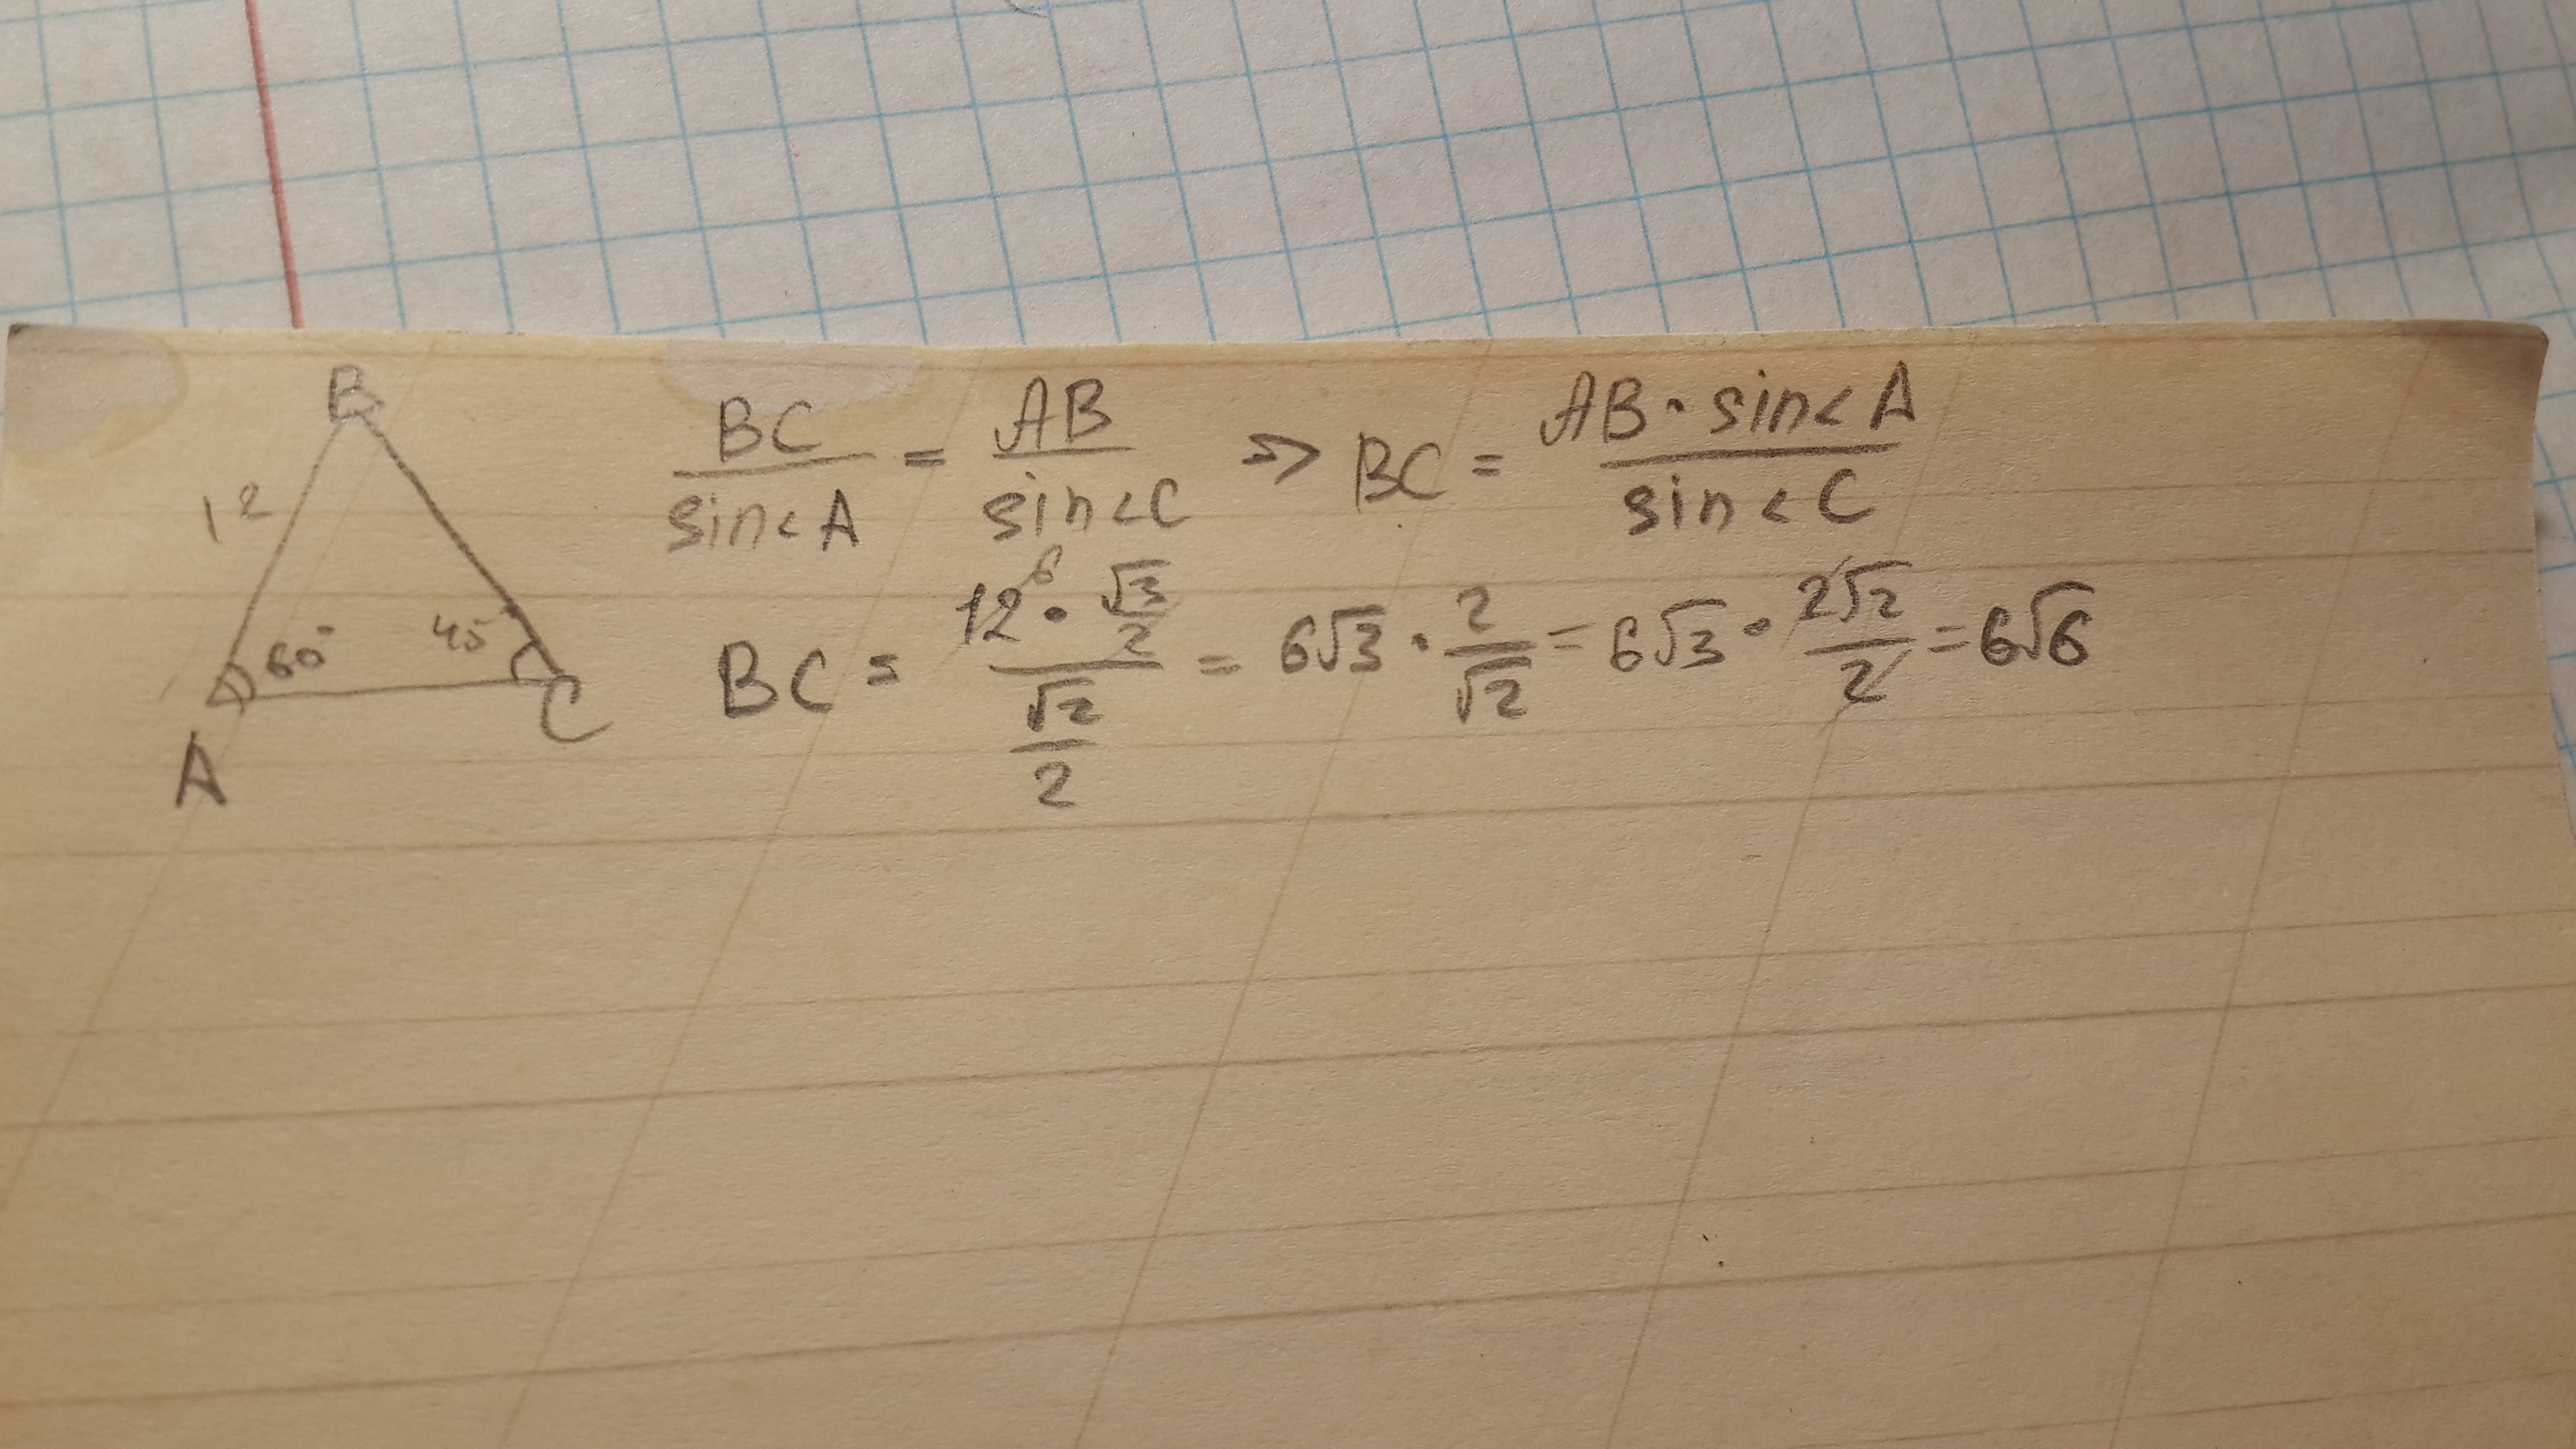 B
12
60° 45°
A C
BC/sin<A = AB/sin<C => BC = AB·sin<A/sin<C
BC = (12^6 · √3/2)/(√2/2) = 6√3 · 2/√2 = 6√3 · 2√2/2 = 6√6